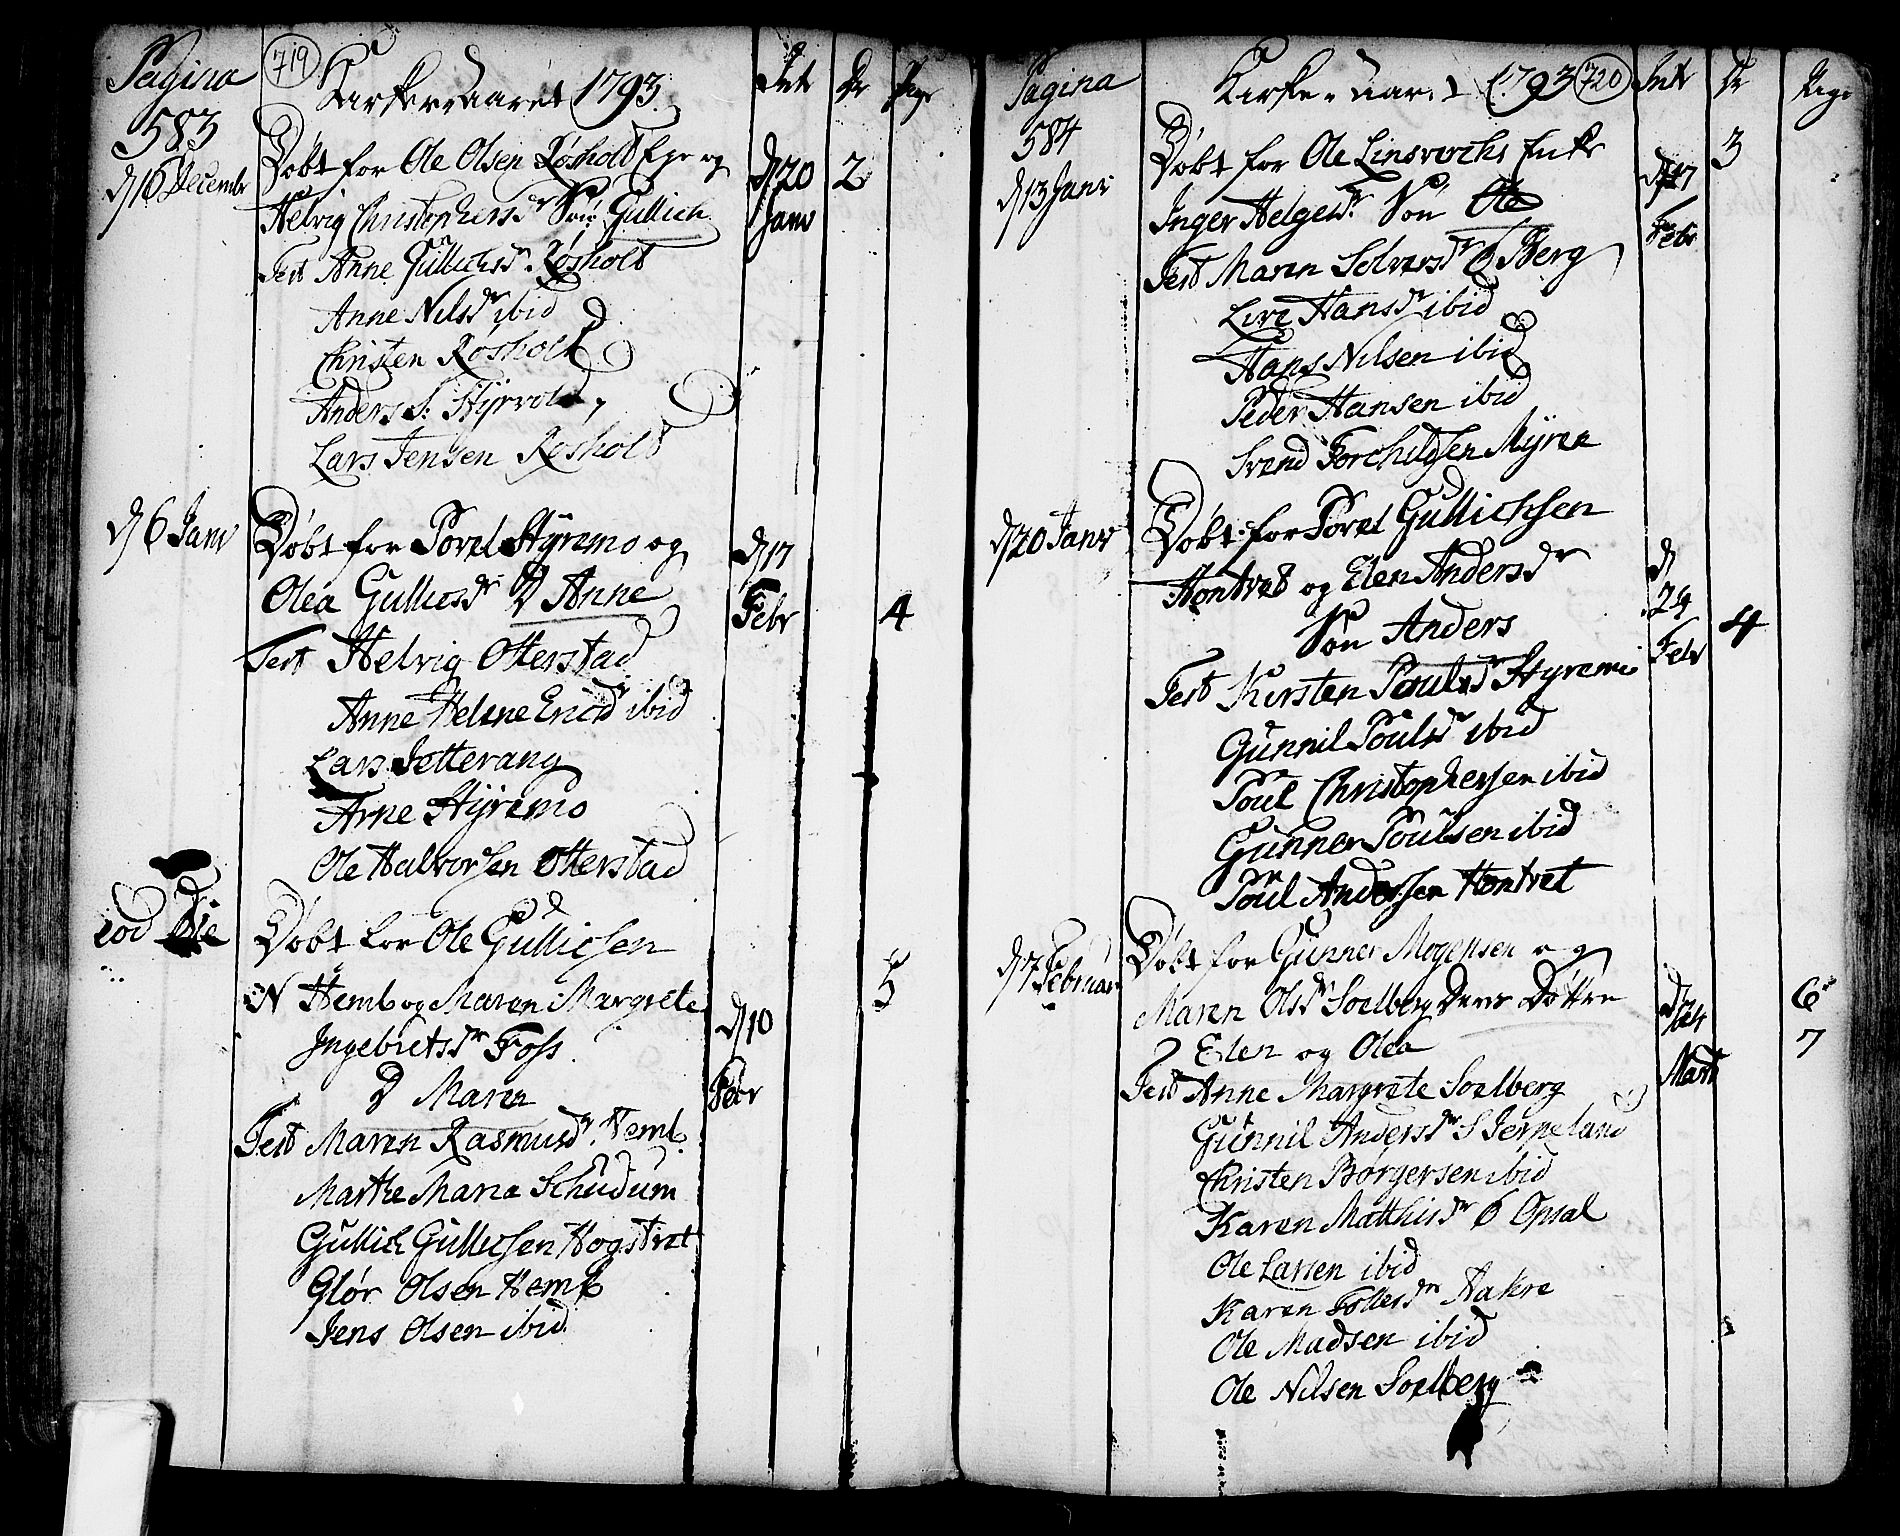 Pagina 719 Kirke-Aaret 1793. Int Dr Pige
583
d 16 Decembr Døbt for Ole Olsen Røsholt Ejer og d 20 2
Helvig Christophersdr Søn Gullich Janv
Test Anne Gullichsdr Røsholt
Anne Nilsdr ibid
Christen Røsholt
Anders S: Styrvold
Lars Jensen Røsholt
d 6 Janv Døbt for Povel Styremo og d 17
Olea Gullicsdr D Anne Febr 4
Test Helvig Otterstad
Anne Helene Ericsdr ibid
Lars Setterang
Arne Styremo
Ole Halvorsen Otterstad
eod Die Døbt for Ole Gullicsen
N Hemb og Maren Margrete 5
Ingebretsdr Foss d 10
D Maren Febr
Test Maren Rasmusdr Hemb
Marthe Maria Schudum
Gullich Gullicsen Hogstvet
Glør Olsen Hemb
Jens Olsen ibid
Pagina Kirke-Aaret 1793 720 Int Dr Pige
584
d 13 Janv Døbt for Ole Linsverchs Enke d 17 3
Inger Helgesdr Søn Ole Febr
Test Maren Selversdr Ø Berg
Live Hansdr ibid
Hans Nilsen ibid
Peder Hansen ibid
Svend Torchildsen Myren
d 20 Janv Døbt for Povel Gullichsen
Hontvet og Elen Andersdr d
Søn Anders 24 4
Test Kirsten Poulsdr Styremo Febr
Gunnil Poulsdr ibid
Poul Christophersen ibid
Gunner Poulsen ibid
Poul Andersen Hontvet
d 7 Februar Døbt for Gunner Mogensen og
Maren Olsdr Soelberg Deres Døttre d 6
2 Elen og Olea 7
Test Anne Margrete Soelberg Marti
Gunnil Andersdr S Jerpeland
Christen Børgersen ibid
Karen Matthisdr Ø Opsal
Ole Larsen ibid
Karen Tollesdr Aakre
Ole Madsen ibid
Ole Nilsen Soelberg